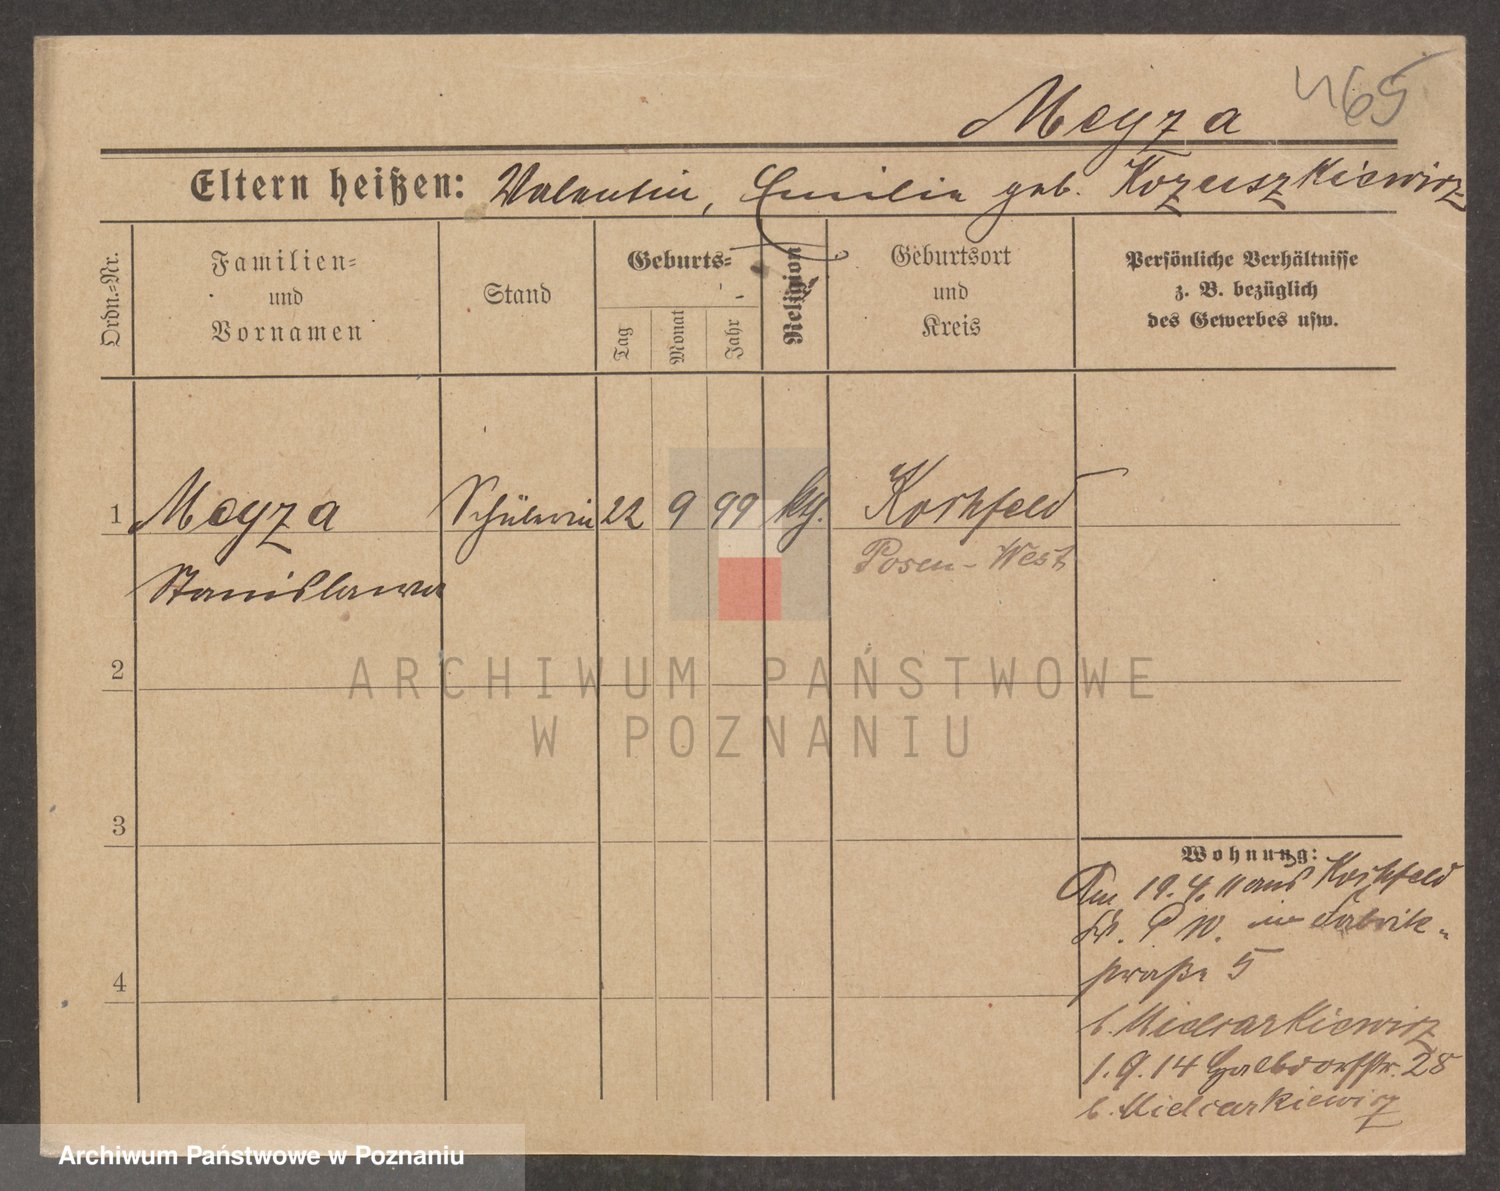 Meyza 465
Eltern heißen: Valentin, Emilie geb. Kozuszkiewicz
Ordn.-Nr.
Familien-
und
Vornamen
Stand
Geburts-
Tag
Monat
Jahr
Religion
Geburtsort
und
Kreis
Persönliche Verhältnisse
z. B. bezüglich
des Gewerbes usw.
1 Meyza Schülerin 22 9 99 Koschfeld
Stanislawa Posen-West
2
3
4
Wohnung:
Am 19.4.11 aus Koschfeld
Kr. P W. in Fabrik-
straße 5
b. Mielcarkiewicz
1.9.14 28
b. Mielcarkiewicz
ARCHIWUM PAŃSTWOWE
W POZNANIU
Archiwum Państwowe w Poznaniu